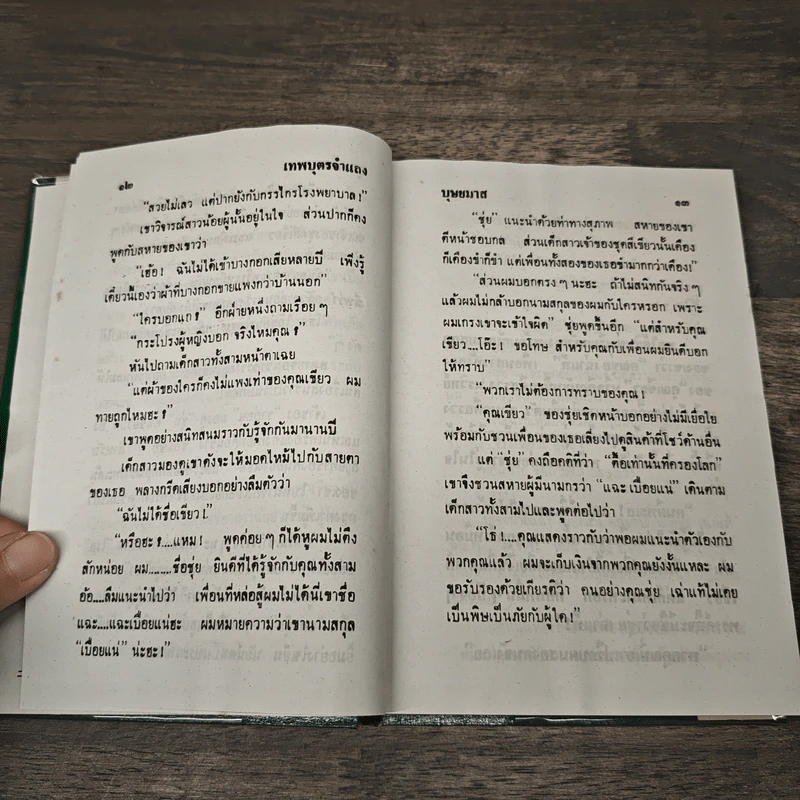 ๑๒
เทพบุตรจำแลง
“สวยไม่เลว แต่ปากยังกับกรรไกรโรงพยาบาล !”
เขาวิจารณ์สาวน้อยผู้นั้นอยู่ในใจ ส่วนปากก็คง
พูดกับสหายของเขาว่า
“เฮ้อ ! ฉันไม่ได้เข้าบางกอกเสียหลายปี เพิ่งรู้
เดี๋ยวนี้เองว่าผ้าที่บางกอกขายแพงกว่าบ้านนอก”
“ใครบอกแก ?” อีกฝ่ายหนึ่งถามเรื่อย ๆ
“กระโปรงผู้หญิงบอก จริงไหมคุณ ?”
หันไปถามเด็กสาวทั้งสามหน้าตาเฉย
“แต่ผ้าของใครก็คงไม่แพงเท่าของคุณเขียว ผม
ทายถูกไหมฮะ ?”
เขาพูดอย่างสนิทสนมราวกับรู้จักกันมานานปี
เด็กสาวมองดูเขาดังจะให้มอดไหม้ไปกับสายตา
ของเธอ พลางกรีดเสียงบอกอย่างลืมตัวว่า
“ฉันไม่ได้ชื่อเขียว !”
“หรือฮะ ?....แหม ! พูดค่อย ๆ ก็ได้หูผมไม่ตึง
สักหน่อย ผม........ชื่อชุ่ย ยินดีที่ได้รู้จักกับคุณทั้งสาม
อ้อ....ลืมแนะนำไปว่า เพื่อนที่หล่อสู้ผมไม่ได้นี่เขาชื่อ
แฉะ....แฉะเปื่อยแน่ฮะ ผมหมายความว่าเขานามสกุล
“เปื่อยแน่” น่ะฮะ !”
บุษยมาส
๑๓
“ชุ่ย” แนะนำด้วยท่าทางสุภาพ สหายของเขา
ตีหน้าชอบกล ส่วนเด็กสาวเจ้าของชุดสีเขียวนั้นเคือง
ก็เคืองขำก็ขำ แต่เพื่อนทั้งสองของเธอขำมากกว่าเคือง !”
“ส่วนผมบอกตรง ๆ นะฮะ ถ้าไม่สนิทกันจริง ๆ
แล้วผมไม่กล้าบอกนามสกุลของผมกับใครหรอก เพราะ
ผมเกรงเขาจะเข้าใจผิด” ชุ่ยพูดขึ้นอีก “แต่สำหรับคุณ
เขียว....โอ๊ะ ! ขอโทษ สำหรับคุณกับเพื่อนผมยินดีบอก
ให้ทราบ”
“พวกเราไม่ต้องการทราบของคุณ !
“คุณเขียว” ของชุ่ยเชิดหน้าบอกอย่างไม่มีเยื่อใย
พร้อมกับชวนเพื่อนของเธอเลี่ยงไปดูสินค้าที่โชว์ด้านอื่น
แต่ “ชุ่ย” คงถือคติที่ว่า “ตื๊อเท่านั้นที่ครองโลก”
เขาจึงชวนสหายผู้มีนามกรว่า “แฉะ เปื่อยแน่” เดินตาม
เด็กสาวทั้งสามไปและพูดต่อไปว่า
“โธ่ !....คุณแสดงราวกับว่าพอผมแนะนำตัวเองกับ
พวกคุณแล้ว ผมจะเก็บเงินจากพวกคุณยังงั้นแหละ ผม
ขอรับรองด้วยเกียรติว่า คนอย่างคุณชุ่ย เฉ่าแท้ไม่เคย
เป็นพิษเป็นภัยกับผู้ใด !”